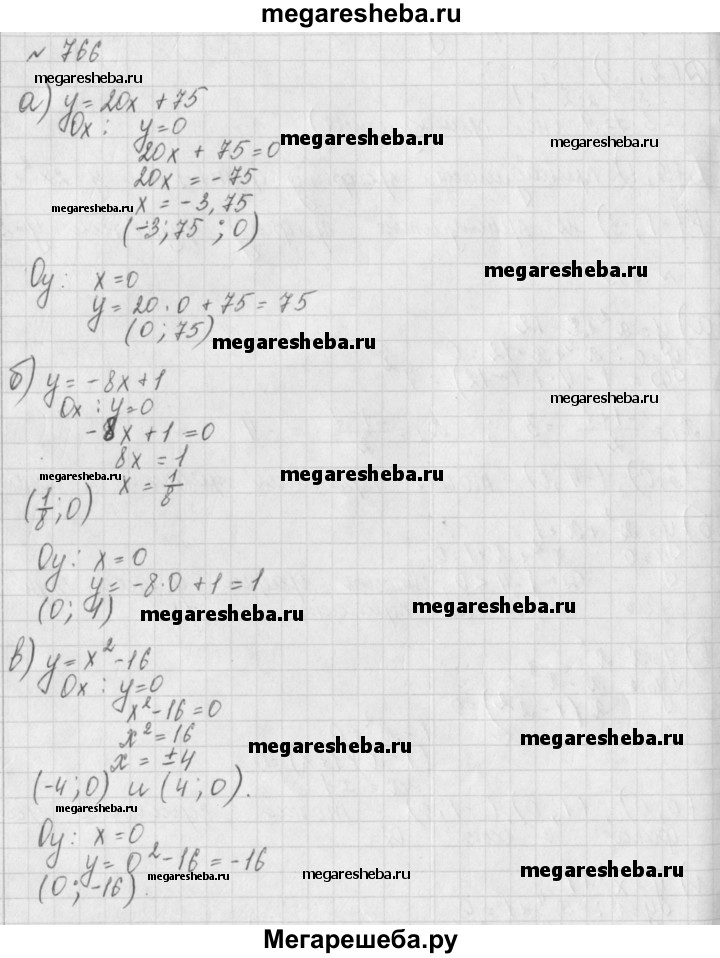 megaresheba.ru
№ 766
megaresheba.ru
а) y = 20x + 75
Ox : y=0
megaresheba.ru
20x + 75 = 0
20x = -75
megaresheba.ru
x = -3,75
(-3,75 ; 0)
Oy : x=0
megaresheba.ru
y = 20·0 + 75 = 75
(0 ; 75)
megaresheba.ru
б) y = -8x+1
Ox : y=0
megaresheba.ru
-8x +1 =0
8x = 1
megaresheba.ru
megaresheba.ru
x = 1/8
(1/8 ; 0)
Oy : x=0
y = -8·0 +1 = 1
(0 ; 1)
megaresheba.ru
megaresheba.ru
в) y = x²-16
Ox : y=0
x²-16 =0
x² = 16
megaresheba.ru
megaresheba.ru
x = ±4
(-4 ; 0) и (4 ; 0).
megaresheba.ru
Oy : x=0
y = 0²-16 = -16
megaresheba.ru
megaresheba.ru
megaresheba.ru
(0 ; -16).
Мегарешеба.ру